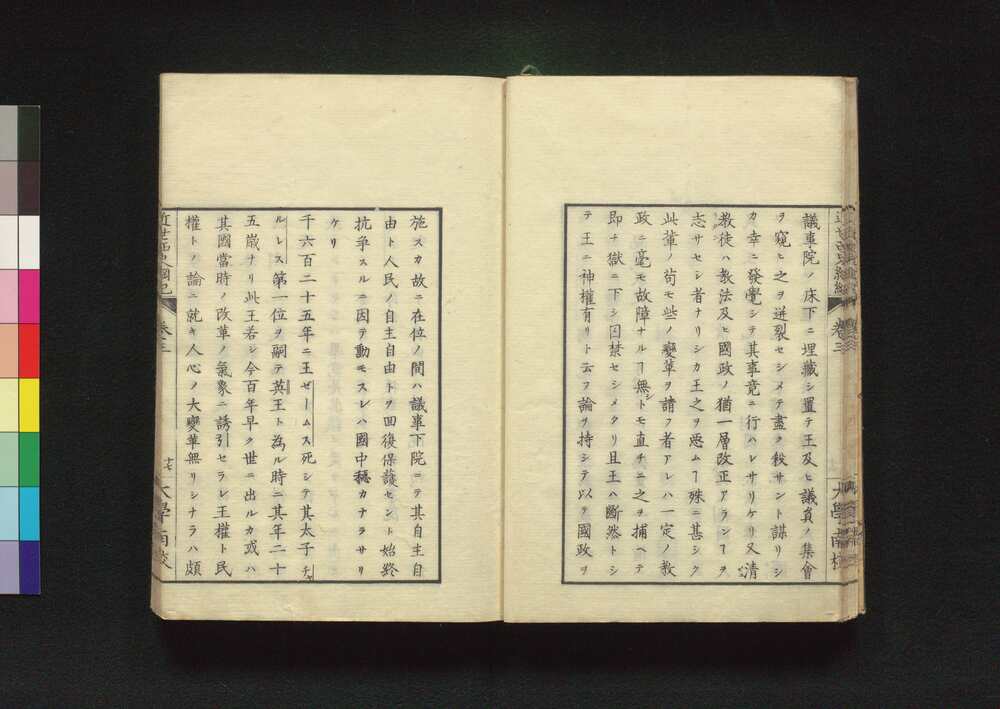 議事院ノ床下ニ埋藏シ置テ王及ヒ議員ノ集會
ヲ窺ヒ之ヲ迸裂セシメテ盡ク殺サント謀リシ
カ幸ニ發覺シテ其事竟ニ行ハレサリケリ又清
教徒ハ教法及ヒ國政ノ猶一層改正アランヿヲ
志サセシ者ナリシカ王之ヲ惡ムヿ殊ニ甚シク
此輩ノ苟モ些ノ變革ヲ請フ者アレハ一定ノ教
政ニ毫モ故障ナルヿ無シトモ直チニ之ヲ捕ヘテ
即ナ獄ニ下シ囚禁セシメタリ且王ハ斷然トシ
テ王ニ神權有リト云フ論ヲ持シテ以テ國政ヲ
卷三
大學南校
施スカ故ニ在位ノ間ハ議事下院ニテ其自主自
由ト人民ノ自主自由トヲ回復保護セント始終
抗爭スルニ因テ動モスレハ國中穩カナラサリ
ケリ
千六百二十五年ニ王ゼームス死シテ其太子チャ
ルレス第一位ヲ嗣テ英王ト為ル時ニ其年二十
五歲ナリ此王若シ今百年早ク世ニ出ルカ或ハ
其國當時ノ改革ノ氣象ニ誘引セラレ王權ト民
權トノ論ニ就キ人心ノ大變革無リシナラハ頗
近世西史綱紀
卷三
大學南校